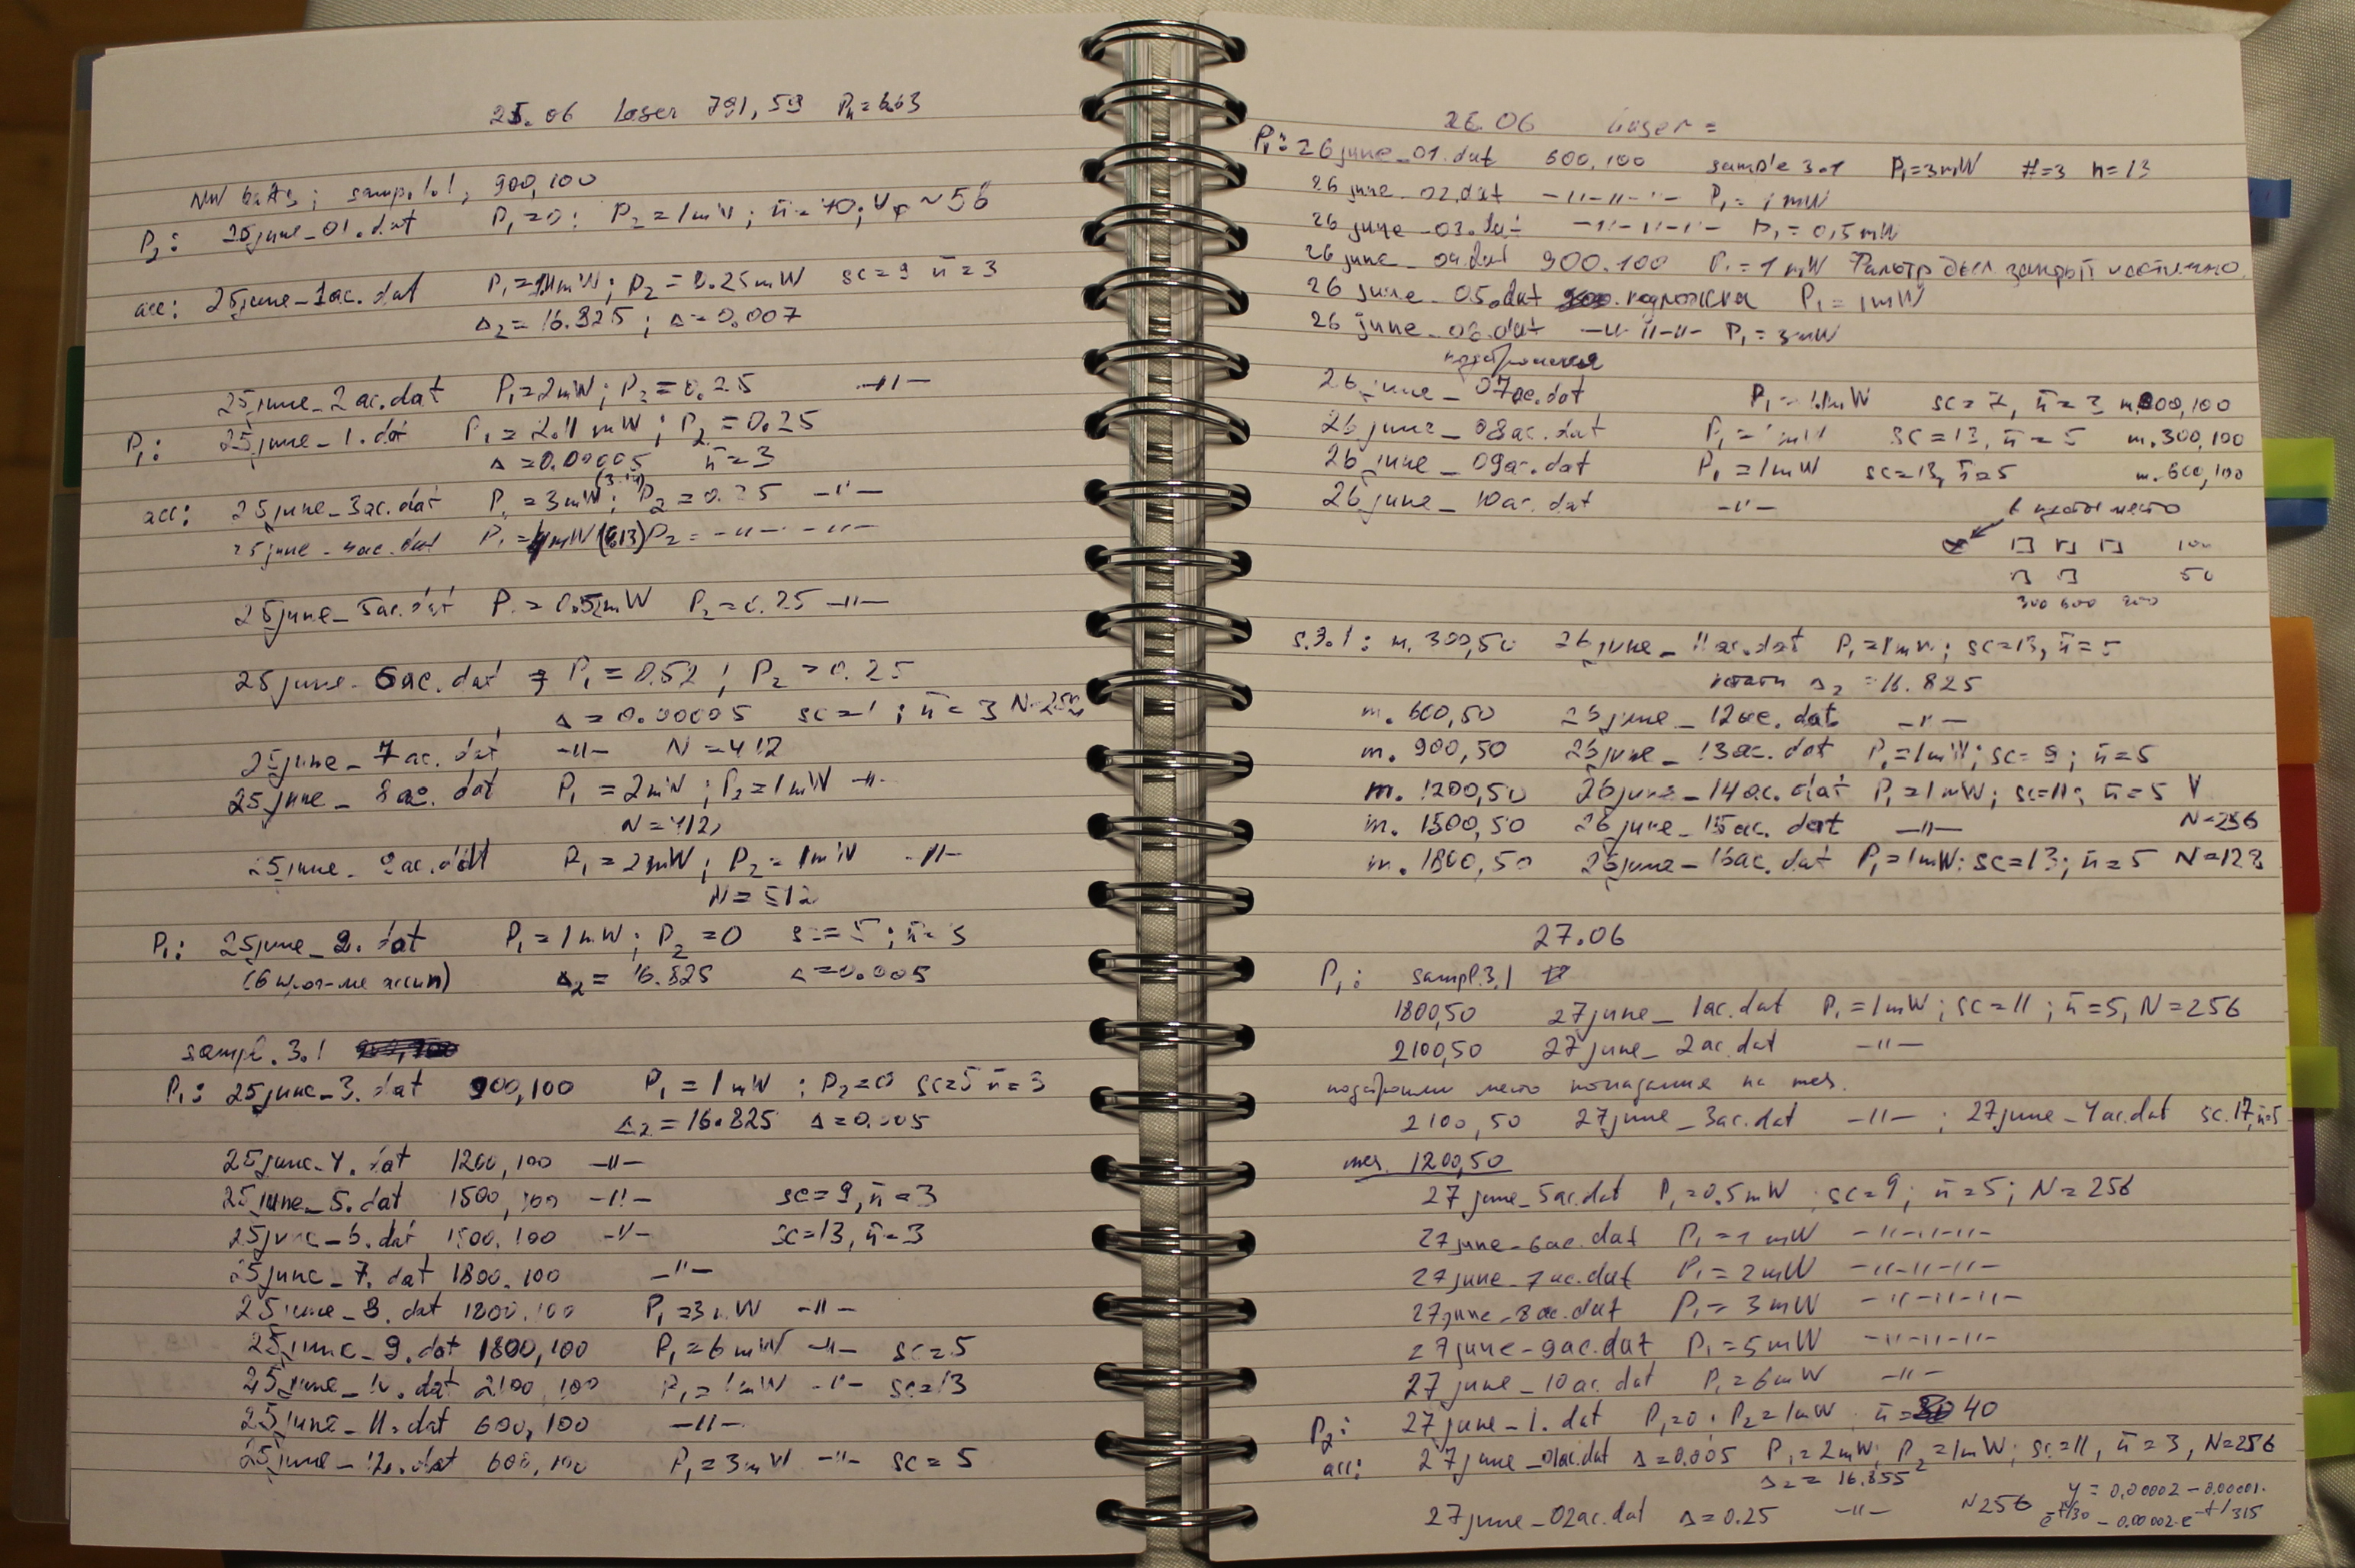 25.06 Laser 791,59
900,100
P₂: 25june_01.dat P₁=0; P₂=1mW; n̄=40;
acc: 25june_1ac.dat P₂=0.25mW sc=9 n̄=3
Δ₂=16.825; Δ=0.007
25june_2ac.dat P₁=2mW; P₂=0.25 -11-
P₁: 25june_1.dat P₁=2.11mW; P₂=0.25
Δ=0.00005 n̄=3
acc: 25june_3ac.dat P₁=3mW; P₂=0.25 -11-
25june_4ac.dat P₂= -11- -11-
25june_5ac.dat P₁=0.52mW P₂=0.25 -11-
25june_6ac.dat P₁=0.52; P₂=0.25
Δ=0.00005 sc=1; n̄=3
25june_7ac.dat -11- N=412
25june_8ac.dat P₁=2mW; P₂=1mW -11-
N=412
25june_9ac.dat P₁=2mW; P₂=1mW -11-
N=512
P₁: 25june_2.dat P₁=1mW; P₂=0 sc=5; n̄=3
Δ₂=16.825 Δ=0.005
sampl.3.1
P₁: 25june_3.dat 900,100 P₁=1mW; P₂=0 sc=5 n̄=3
Δ₂=16.825 Δ=0.005
25june_4.dat 1200,100 -11-
25june_5.dat 1500,100 -11- sc=9, n̄=3
25june_6.dat 1500,100 -11- sc=13, n̄=3
25june_7.dat 1800,100 -11-
25june_8.dat 1800,100 P₁=3mW -11-
25june_9.dat 1800,100 P₁=6mW -11- sc=5
25june_10.dat 2100,100 P₁=1mW -11- sc=13
25june_11.dat 600,100 -11-
25june_12.dat 600,100 P₁=3mW -11- sc=5
26.06 Laser=
P₁: 26june_01.dat 600,100 sample 3.1 P₁=3mW #=3 n=13
26june_02.dat -11-11-11- P₁=1mW
26june_03.dat -11-11-11- P₁=0,5mW
26june_04.dat 900.100 P₁=1mW Фильтр был закрыт частично
26june_05.dat подложка P₁=1mW
26june_06.dat -11-11-11- P₁=3mW
26june_07ac.dat sc=7, n̄=3
26june_08ac.dat P₁=1mW sc=13, n̄=5 m.300,100
26june_09ac.dat P₁=1mW sc=13, n̄=5 m.600,100
26june_10ac.dat -11-
в пустое место
100
50
300 600 900
s.3.1: m.300,50 26june_11ac.dat P₁=1mW; sc=13, n̄=5
кстати Δ₂=16.825
m.600,50 26june_12ac.dat -11-
m.900,50 26june_13ac.dat P₁=1mW; sc=9; n̄=5
m.1200,50 26june_14ac.dat P₁=1mW; sc=11; n̄=5 V
m.1500,50 26june_15ac.dat -11- N=256
m.1800,50 26june_16ac.dat P₁=1mW; sc=13; n̄=5 N=128
27.06
P₁: sampl.3.1
1800,50 27june_1ac.dat P₁=1mW; sc=11; n̄=5, N=256
2100,50 27june_2ac.dat -11-
подстроили место попадания на mes.
2100,50 27june_3ac.dat -11-; 27june_4ac.dat sc.17, n̄=5
mes. 1200,50
27june_5ac.dat P₁=0.5mW; sc=9; n̄=5; N=256
27june_6ac.dat P₁=1mW -11-11-11-
27june_7ac.dat P₁=2mW -11-11-11-
27june_8ac.dat P₁=3mW -11-11-11-
27june_9ac.dat P₁=5mW -11-11-11-
27june_10ac.dat P₁=6mW -11-
P₂: 27june_1.dat P₁=0; P₂=1mW n̄= 40
acc: 27june_01ac.dat Δ=0.005 P₁=2mW; P₂=1mW; sc=11, n̄=3, N=256
Δ₂=16.855
27june_02ac.dat Δ=0.25 -11- N256
y=0,00002-0,00001·
e^-t/30 -0.00002·e^-t/315